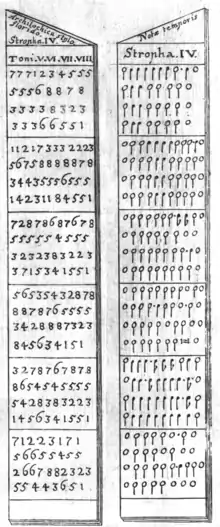 Stropha. IV.
Toni. V. VI. VII. VIII
7 7 7 1 2 3 4 5 5 5
5 5 5 6 8 8 7 8
3 3 3 3 8 3 2 3
3 3 3 6 6 5 5 1
1 1 2 1 7 3 3 3 2 2 2 3
5 6 7 5 8 8 8 8 8 7 8
3 4 4 3 5 5 5 6 5 5 5
1 4 2 3 1 1 8 4 5 5 1
7 2 8 7 8 6 8 7 6 7 8
5 5 5 5 5 4 5 5 5
3 2 3 2 3 8 3 2 2 3
3 7 1 5 3 4 1 5 5 1
5 6 5 3 5 4 3 2 8 7 8
8 8 7 8 7 6 5 5 5 5
3 4 2 8 8 8 7 3 2 3
8 4 5 6 3 4 1 5 1
3 2 7 8 7 6 7 8 7 8
8 6 5 4 5 4 5 5 5 5
5 4 2 8 3 8 3 2 2 3
1 4 5 6 3 4 1 5 5 1
7 1 2 2 3 1 7 1
5 6 6 5 5 4 5 5
2 6 6 7 8 8 2 3 2 3
5 5 4 4 3 6 5 1
Notæ temporis
Stropha. IV.